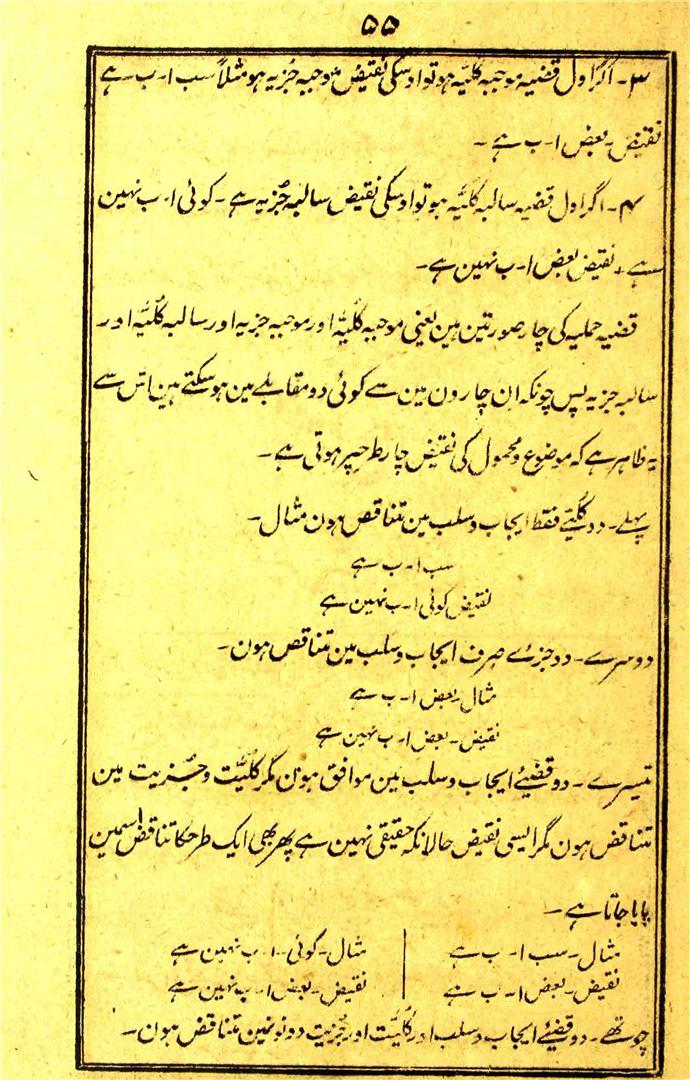 ۵۵
۳۔ اگر اول قضیہ موجبہ کلیّہ ہو تو اوسکی نقیض موجبہ جُزیہ ہو مثلاً سب ا۔ ب ہے
نقیض۔ بعض ا۔ ب ہے۔
۴۔ اگر اول قضیہ سالبہ کلیّہ ہو تو اوسکی نقیض سالبہ جُزیہ ہے۔ کوئی ا۔ ب نہین
ہے، نقیض بعض ا۔ ب نہین ہے۔
قضیہ حملیہ کی چار صورتین ہین یعنی موجبہ کلیّہ اور موجبہ جزیہ اور سالبہ کلیّہ اور
سالبہ جزیہ پس چونکہ ان چارون مین سے کوئی دو مقابلے مین ہوسکتے ہین اس سے
یہ ظاہر ہے کہ موضوع و محمول کی نقیض چار طرحپر ہوتی ہے۔
پہلے۔ دو کُلّیے فقط ایجاب و سلب مین تناقص ہون مثال۔
سب ا۔ ب ہے
نقیض کوئی ا۔ ب نہین ہے
دوسرے۔ دو جزئے صرف ایجاب و سلب مین تناقص ہون۔
مثال بعض ا۔ ب ہے
نقیض۔ بعض ا۔ ب نہین ہے
تیسرے۔ دو قضیّے ایجاب و سلب مین موافق ہون مگر کلیّت و جُزیت مین
تناقض ہون مگر ایسی نقیض حالانکہ حقیقی نہین ہے پھر بھی ایک طرحکا تناقض اسمین
پایا جاتا ہے۔
مثال۔ سب ا۔ ب ہے | مثال۔ کوئی۔ ا۔ ب نہین ہے
نقیض۔ بعض ا۔ ب ہے | نقیض۔ بعض ا۔ ب نہین ہے
چوتھے۔ دو قضیّے ایجاب و سلب اور کُلیّت اور جُزیت دونونمین تناقض ہون۔